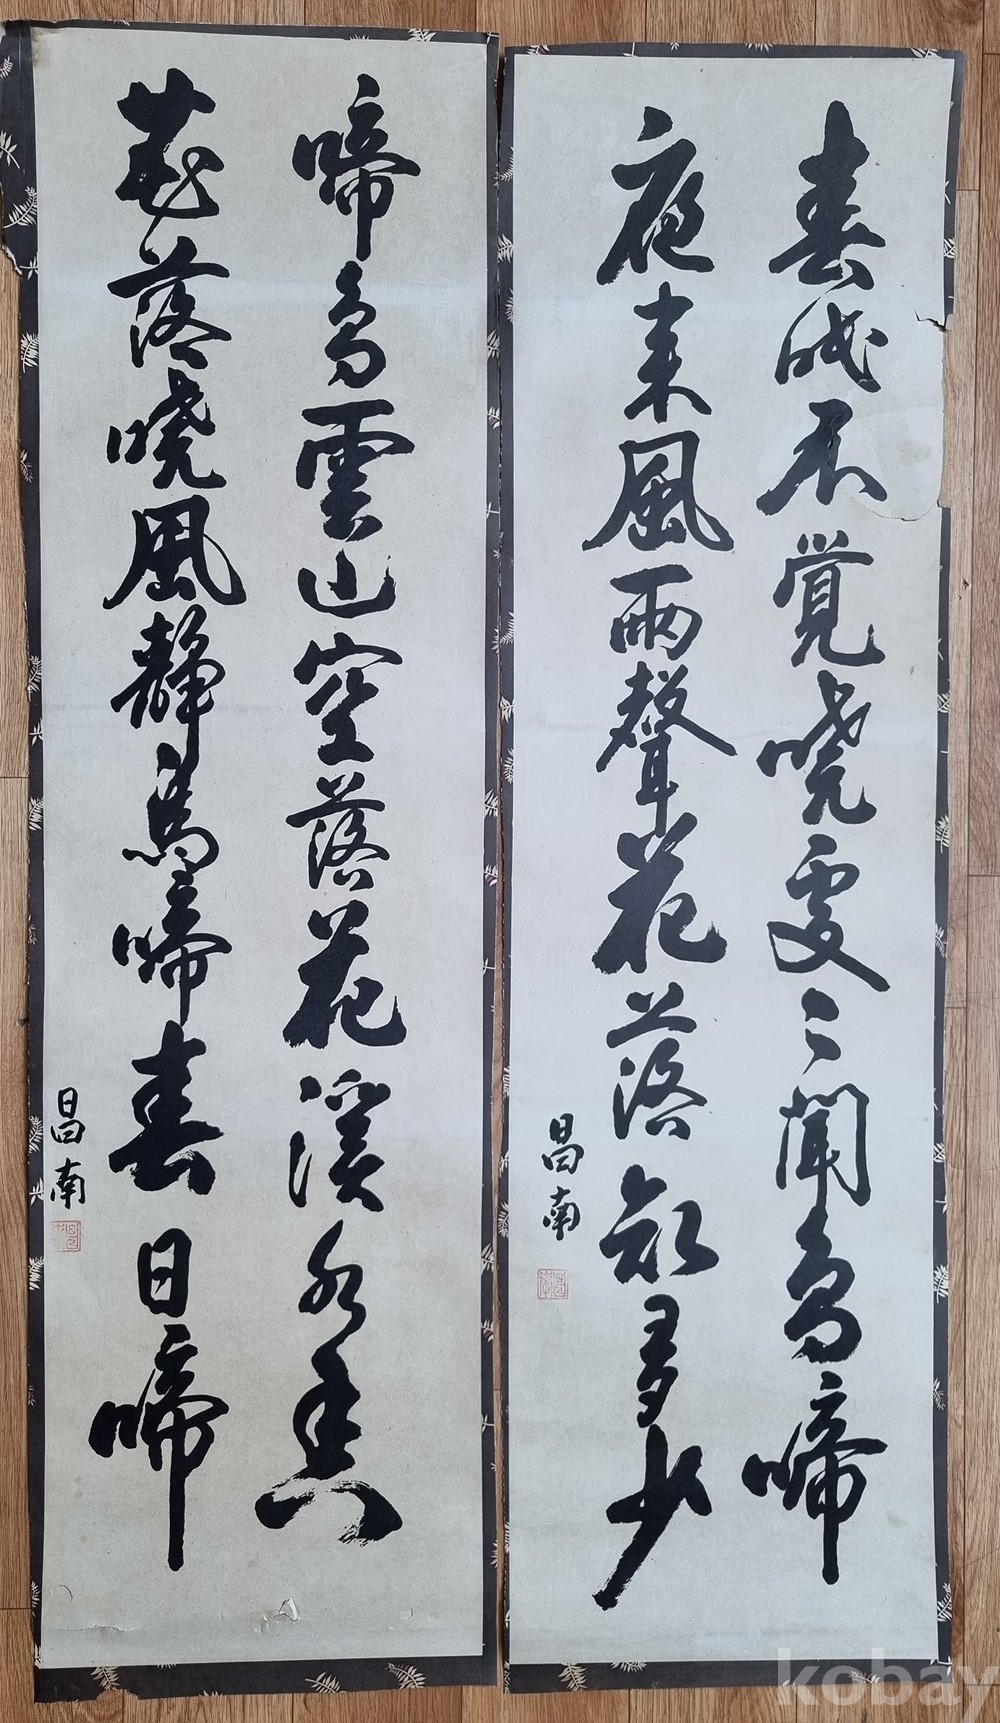 春眠不覚曉處〻聞鳥啼
夜来風雨聲花落知多少
昌南
啼鳥雲山空落花渓水香
花落曉風静鳥啼春日啼
昌南
kobay